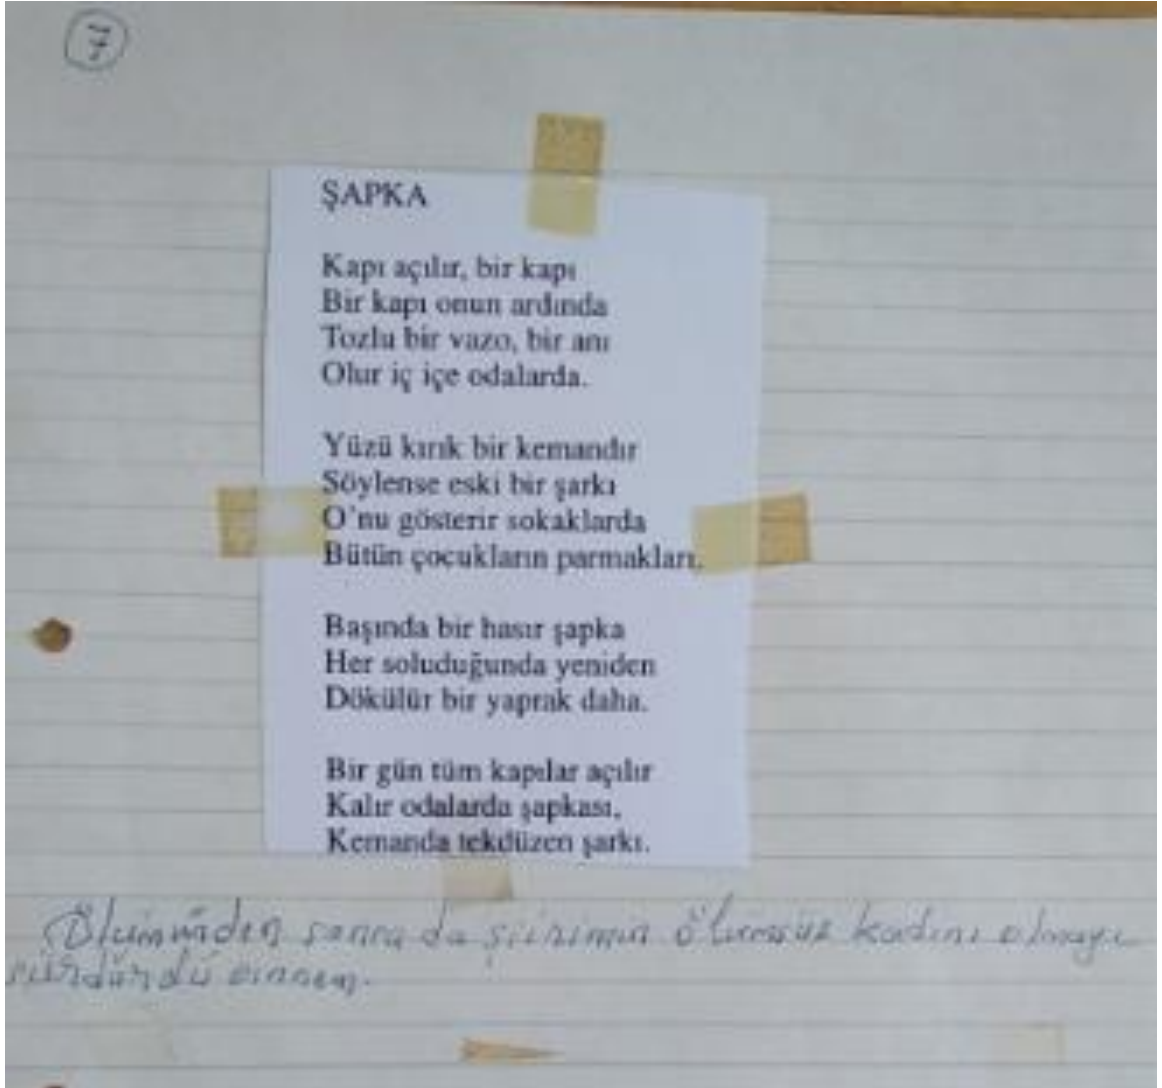 7
ŞAPKA
Kapı açılır, bir kapı
Bir kapı onun ardında
Tozlu bir vazo, bir anı
Olur iç içe odalarda.
Yüzü kırık bir kemandır
Söylense eski bir şarkı
O'nu gösterir sokaklarda
Bütün çocukların parmakları.
Başında bir hasır şapka
Her soluduğunda yeniden
Dökülür bir yaprak daha.
Bir gün tüm kapılar açılır
Kalır odalarda şapkası,
Kemanda tekdüzen şarkı.
Ölümünden sonra da şiirimin ölümsüz kadını olmayı
sürdürdü annem.